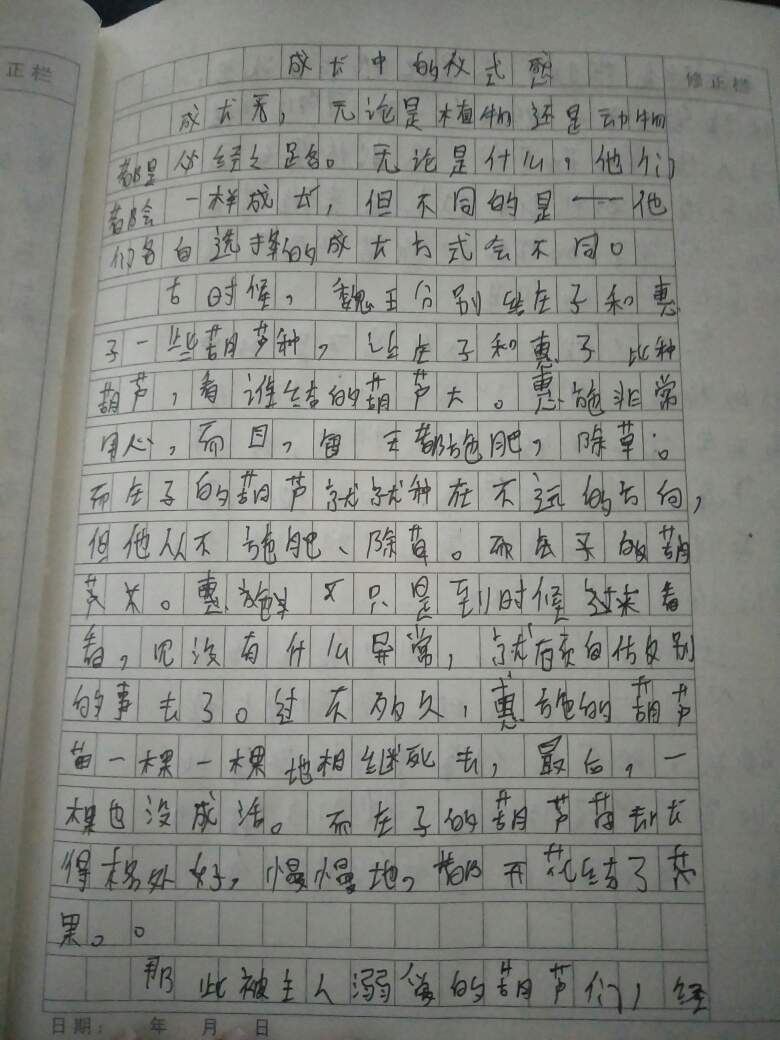 正栏
修正栏
成长中的仪式感
成长无,无论是植物还是动物
都是必经之路。无论是什么,他们
都会一样成长,但不同的是——他
们各自选择的成长方式会不同。
古时候,魏王分别给庄子和惠
子一些葫芦种,让庄子和惠子比种
葫芦,看谁结的葫芦大。惠施非常
用心,而且,每天都施肥,除草。
而庄子的葫芦就就种在不远的方向,
但他从不施肥、除草。而庄子的葫
芦苗。惠施又只是到时候过来看
看,见没有什么异常,就自做别
的事去了。过不多久,惠施的葫芦
苗一棵一棵地相继死去,最后,一
棵也没成活。而庄子的葫芦苗却长
得格外好,慢慢地,都开花结了
果。。
那些被主人溺爱的葫芦们,经
日期: 年 月 日